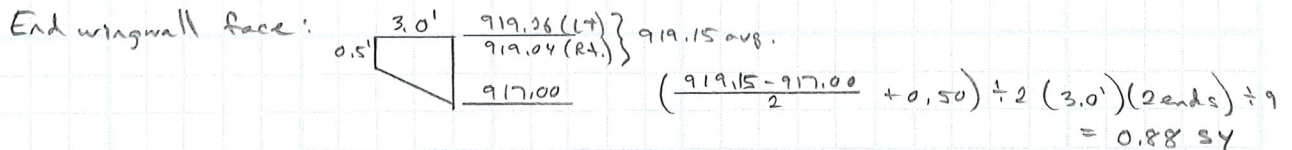 End wingwall face:
3.0'
0.5'
919.26 (Lt)
919.04 (Rt.)
} 919.15 avg.
917.00
(919.15-917.00 / 2 + 0.50) ÷ 2 (3.0')(2 ends) ÷ 9
= 0.88 SY